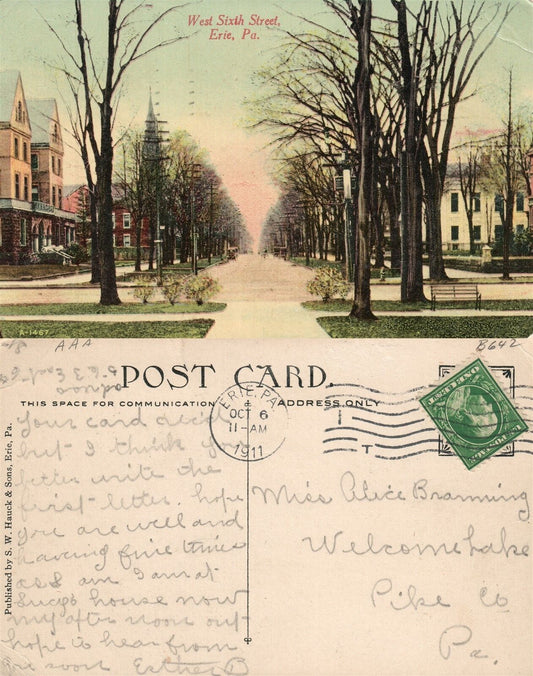 West Sixth Street,
Erie, Pa.
A-1467
AAA
B642
POST CARD.
THIS SPACE FOR COMMUNICATION
ADDRESS ONLY
ERIE, PA.
OCT 6
11-AM
1911
Published by S. W. Hauck & Sons, Erie, Pa.
Your card
but I think you
better write the
first letter. hope
you are well and
having fine times
as I am I am at
Lucys house now
my after noon out
hope to hear from
soon Esther B
Miss Alice Branning
Welcome Lake
Pike Co
Pa.